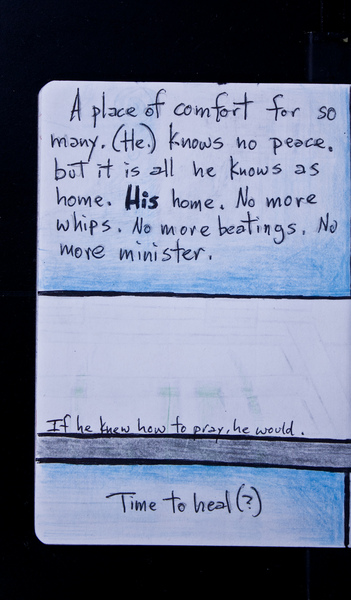 A place of comfort for so
many. (He.) knows no peace.
but it is all he knows as
home. His home. No more
whips. No more beatings. No
more minister.
If he knew how to pray, he would.
Time to heal (?)